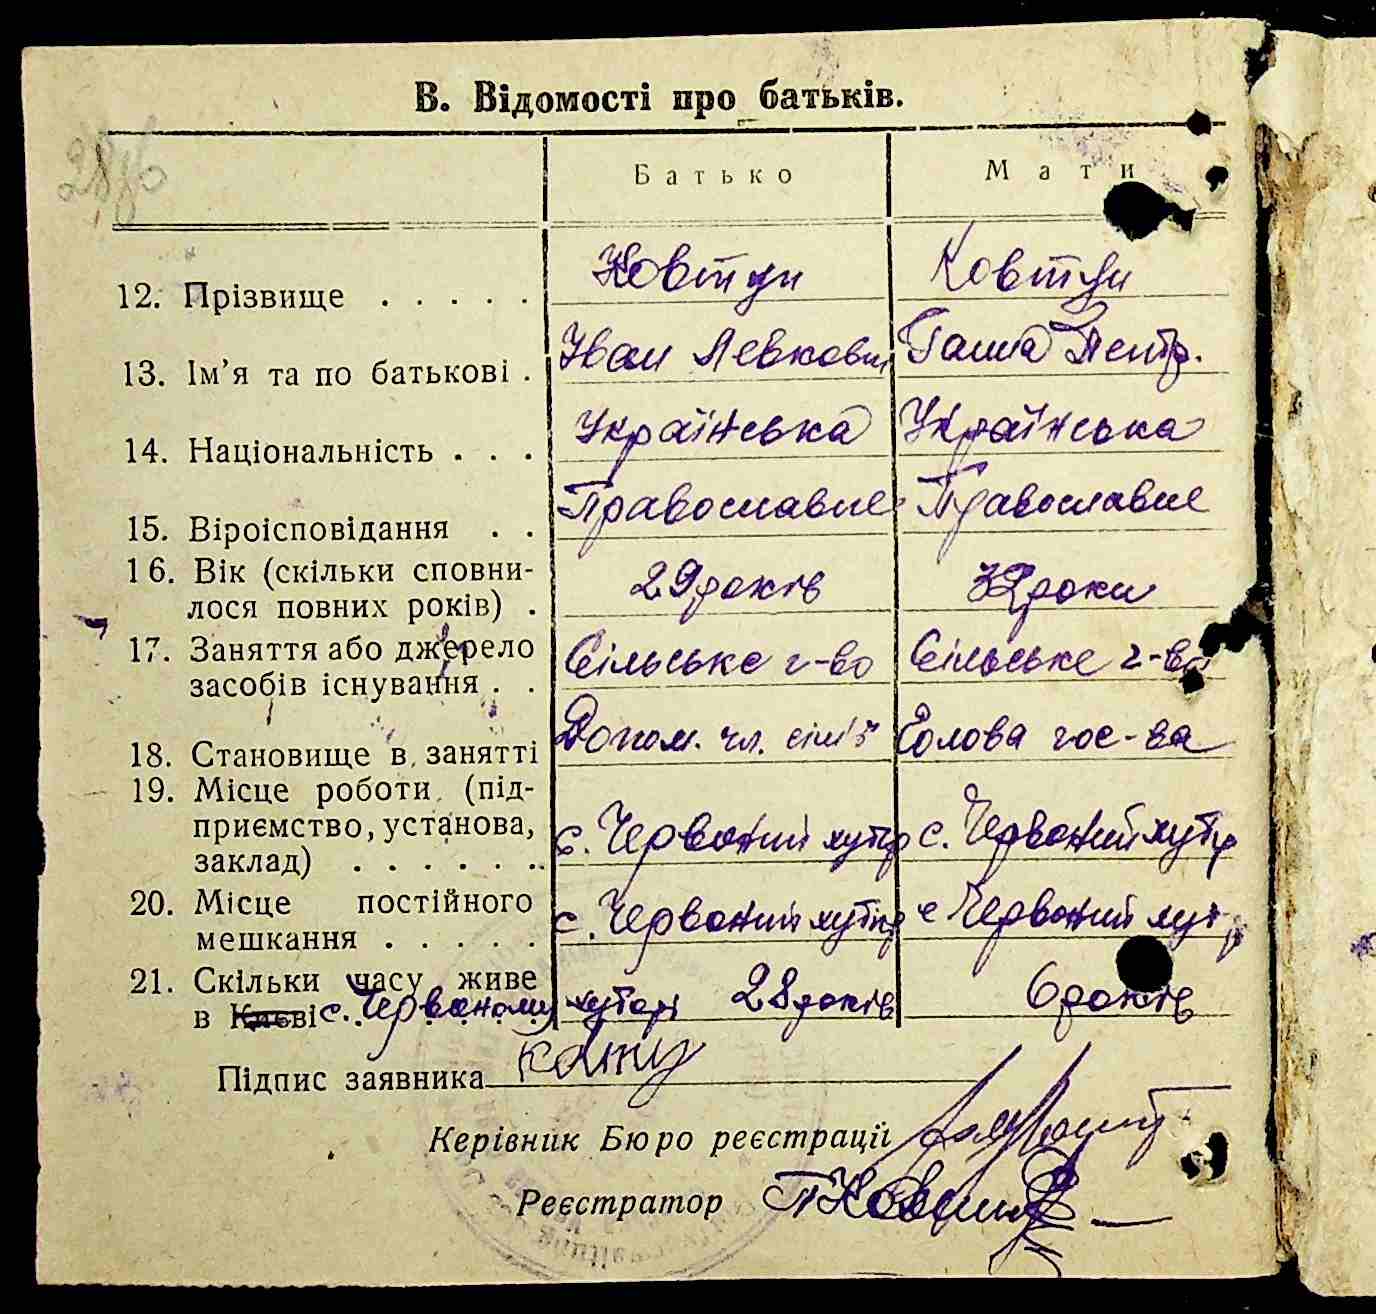 В. Відомості про батьків.
Батько Мати
12. Прізвище . . . . . Ковтун Ковтун
13. Ім'я та по батькові . Іван Левкови Ганна Петр.
14. Національність . . . Українська Українська
15. Віроісповідання . . Православне Православне
16. Вік (скільки сповни-
лося повних років) . 29 років 32 роки
17. Заняття або джерело
засобів існування . . Сільське г-во Сільське г-во
18. Становище в занятті Допом. чл. сім'ї Голова гос-ва
19. Місце роботи (під-
приємство, установа,
заклад) . . . . . . с. Червоний хутір с. Червоний хутір
20. Місце постійного
мешкання . . . . . с. Червоний хутір с Червоний хут
21. Скільки часу живе
в Києві с. Червоному хуторі 28 років 6 років
Підпис заявника
Керівник Бюро реєстрації
Реєстратор